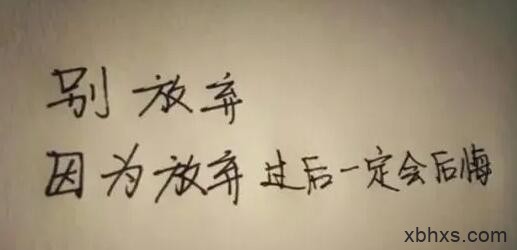 别放弃
因为放弃过后一定会后悔
xbhxs.com